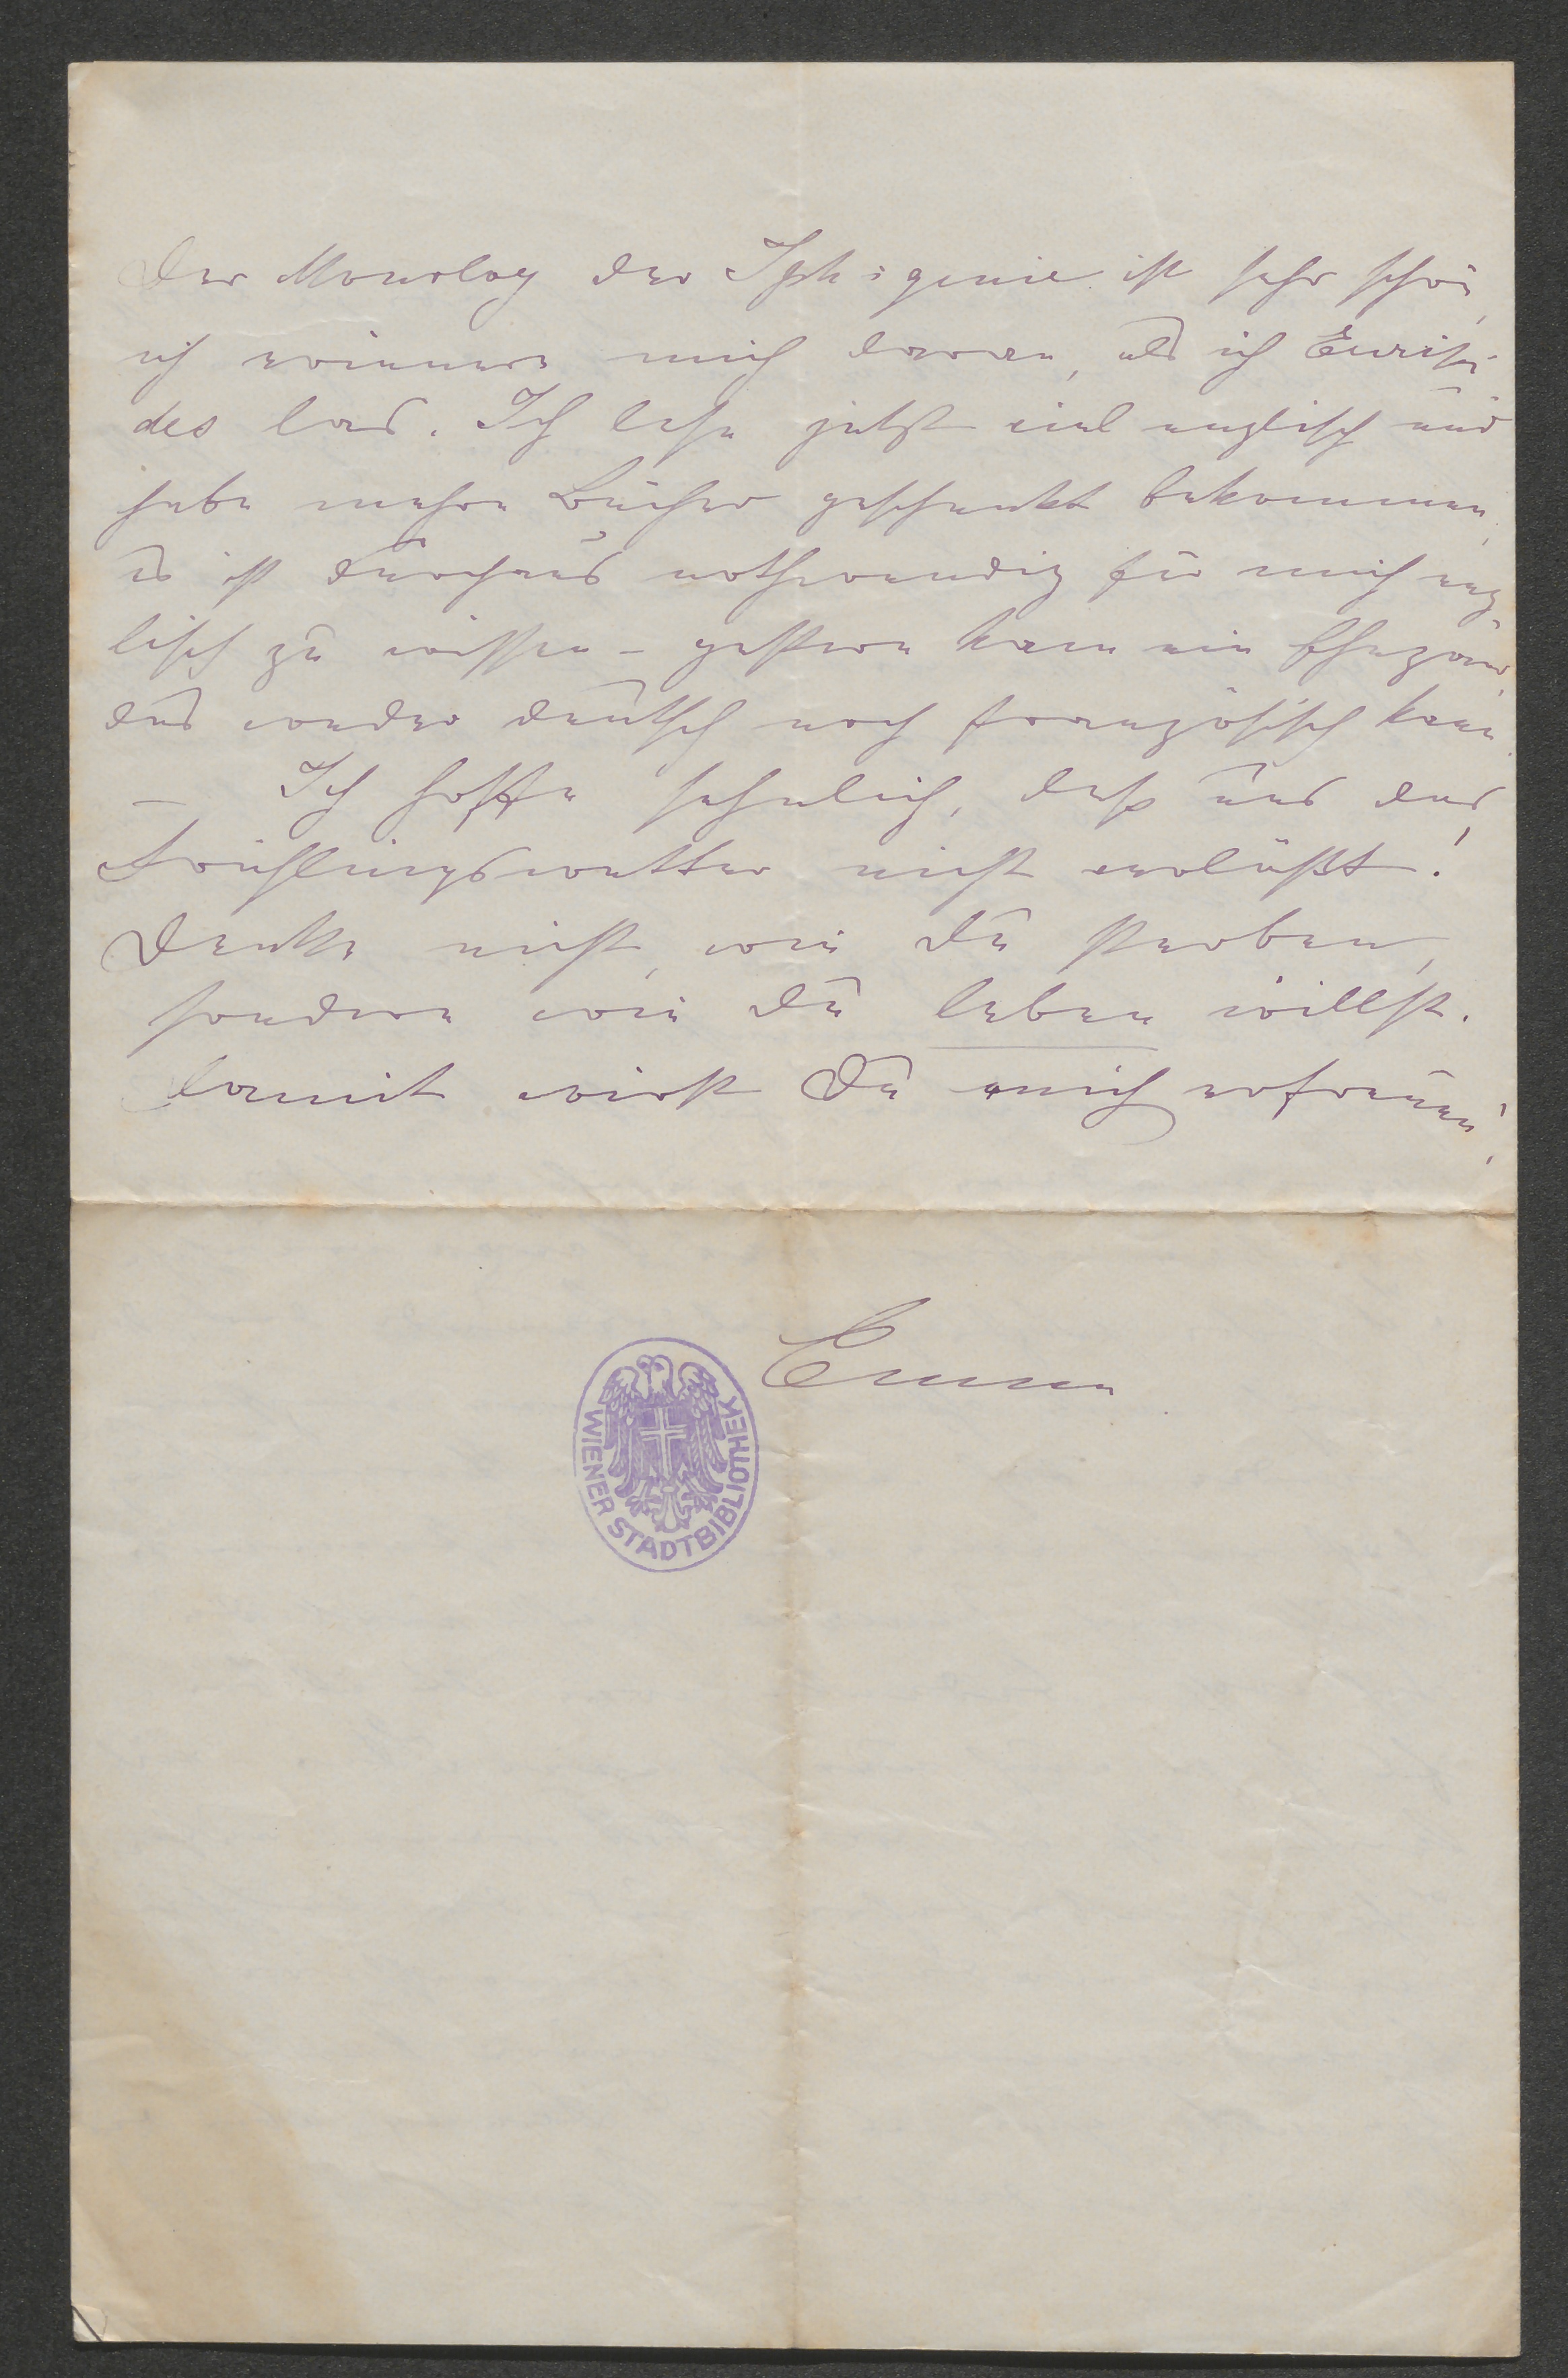 Der Monolog der Iphigenie ist sehr schön,
ich erinnere mich daran, als ich Euripi
des las. Ich lese jetzt viel englisch und
habe mehre Bücher geschenkt bekommen,
es ist durchaus nothwendig für mich eng
lisch zu wissen – gestern kam ein Ehepaar,
das weder deutsch noch französisch kann.
– Ich hoffe sehnlich, daß uns das
Frühlingswetter nicht verläßt!
Denke nicht, wie Du sterben,
sondern wie Du leben willst.
Damit wirst Du mich erfreuen!
Emma
WIENER STADTBIBLIOTHEK